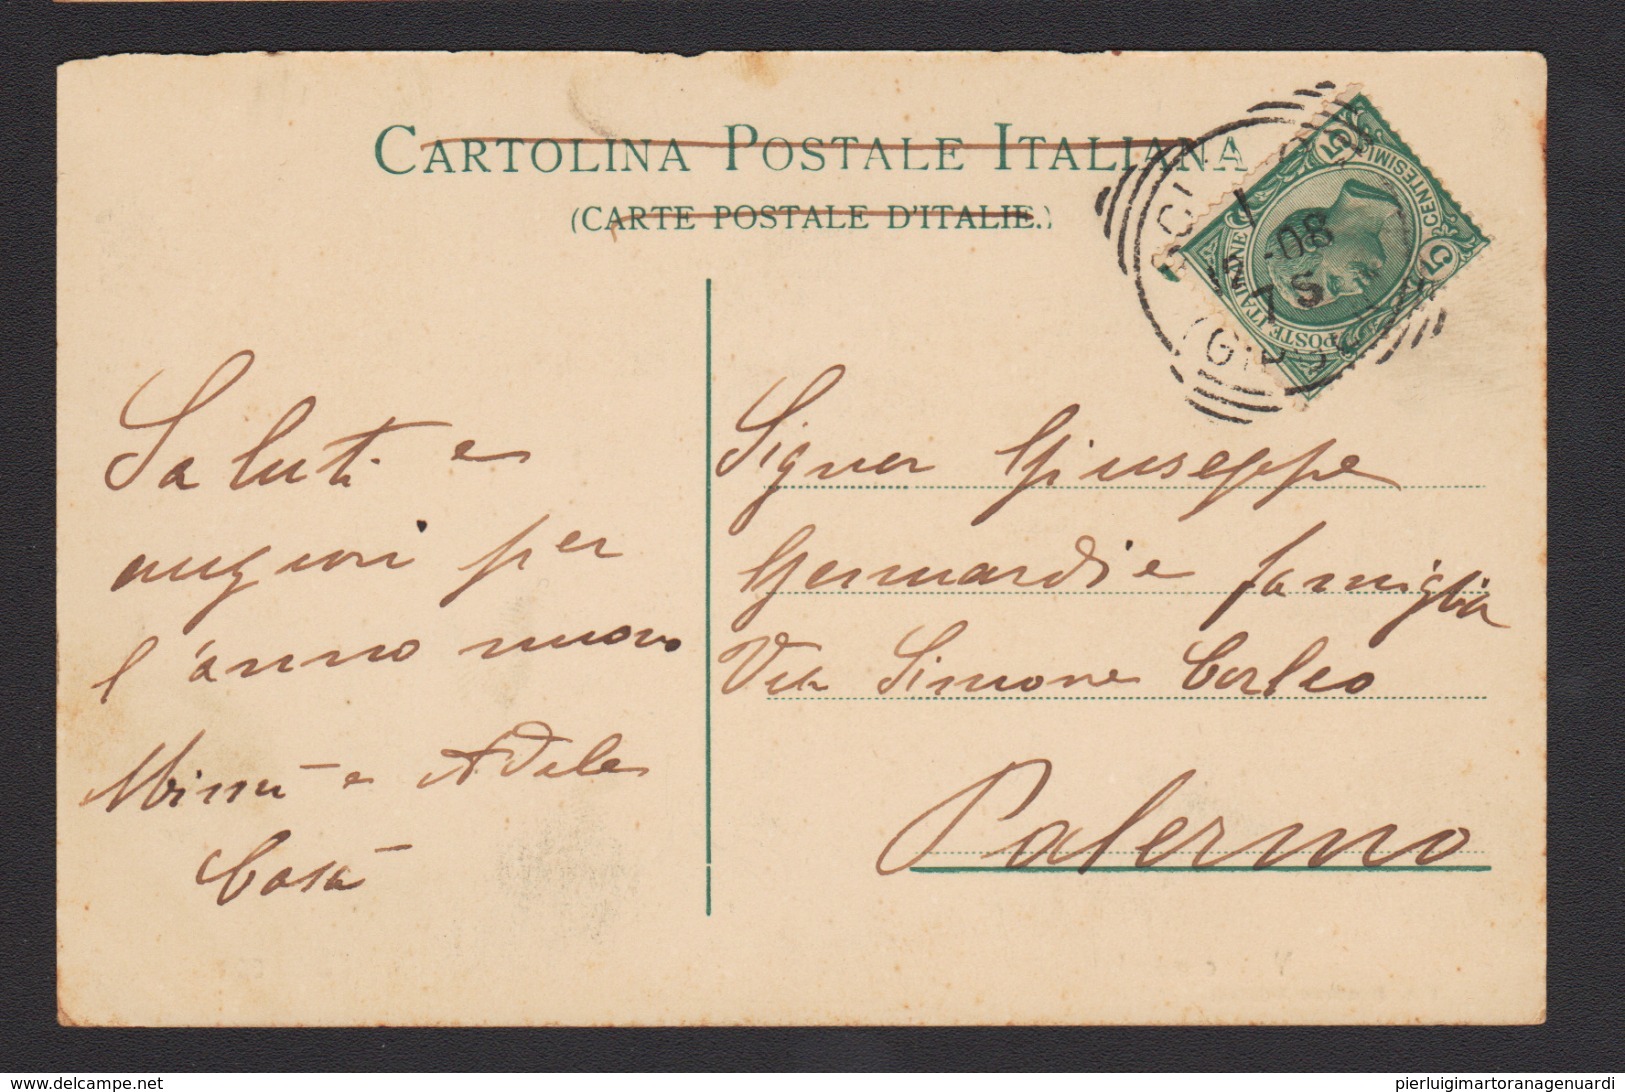 CARTOLINA POSTALE ITALIANA
(CARTE POSTALE D'ITALIE.)
POSTE ITALIANE
CENTESIMI
5
5
1
-08
7 S
Saluti e
auguri per
l'anno nuovo
Mimì e Adele
Cosa
Signor Giuseppe
Gennardi e famiglia
Via Simone Corleo
Palermo
delcampe.net
pierluigimartoranagenuardi